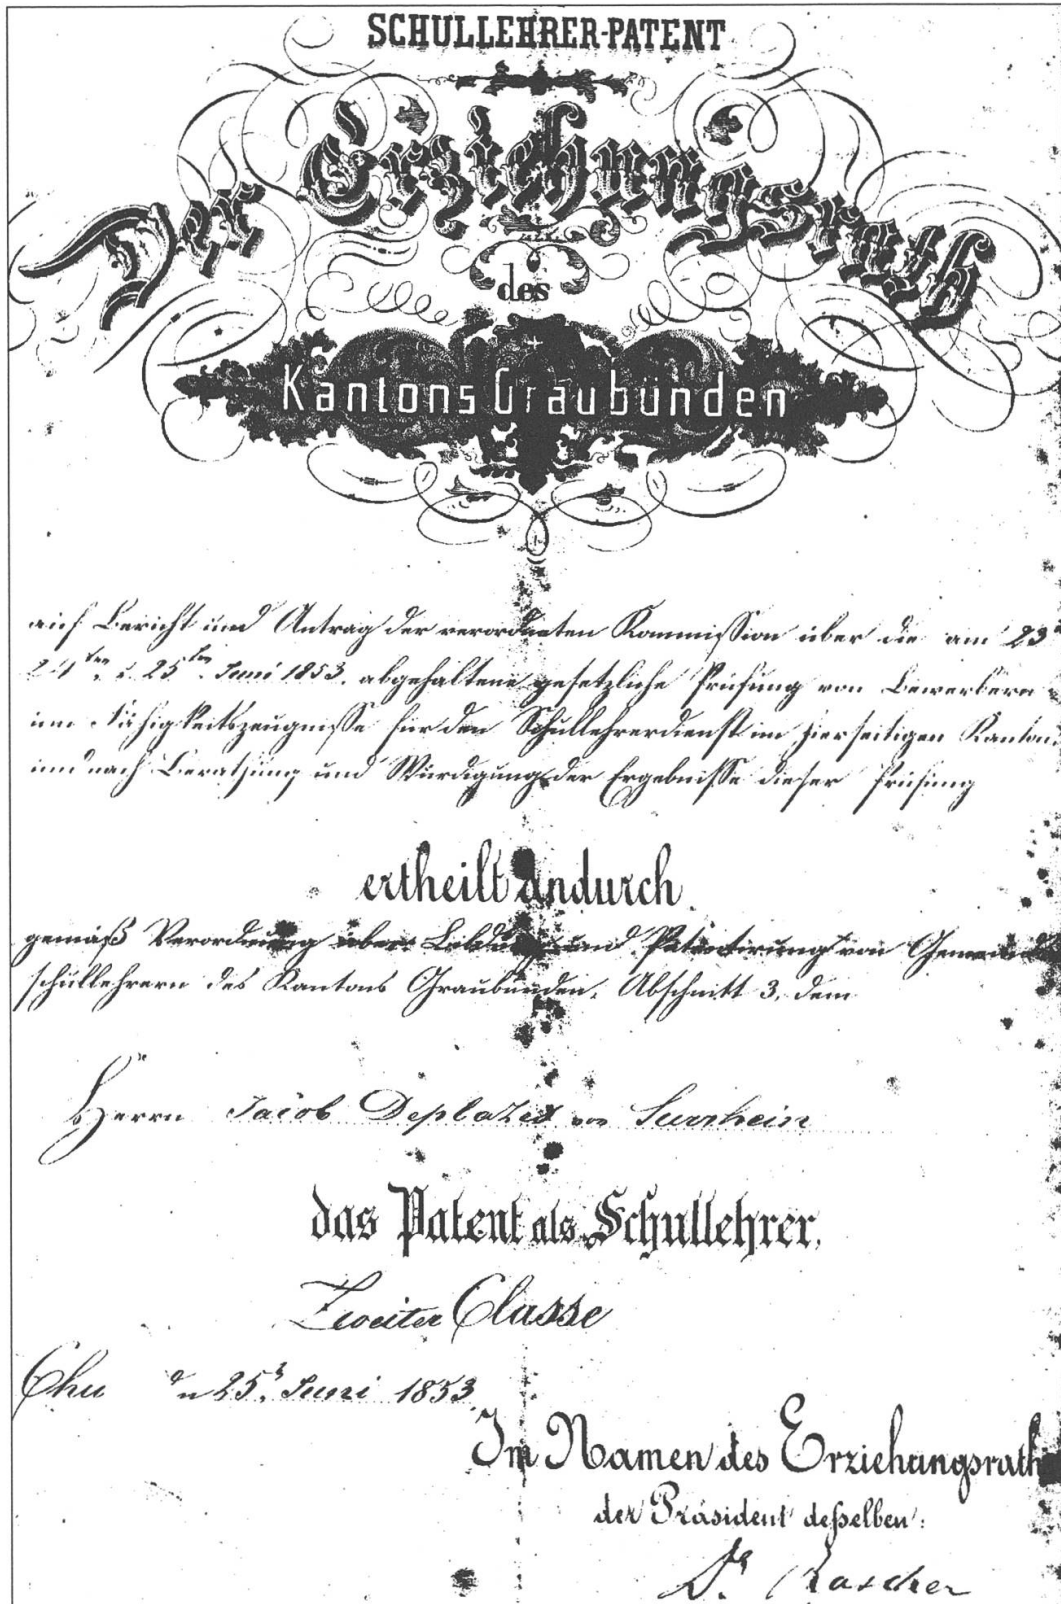 SCHULLEHRER-PATENT
Der Erziehungsrath
des
Kantons Graubünden
auf Bericht und Antrag der verordneten Kommission über die am 23ⁿ
24ten. u. 25ten. Juni 1853. abgehaltene gesetzliche Prüfung von Bewerbern
um Fähigkeitszeugnisse für den Schullehrerdienst im hierseitigen Kanton,
und nach Berathung und Würdigung der Ergebnisse dieser Prüfung
ertheilt andurch
gemäß Verordnung über Bildung und Patentirung von Gemeinde
schullehrern des Kantons Graubünden, Abschnitt 3, dem
Herrn Jacob Deplazes von Surrhein
das Patent als Schullehrer,
Zweiter Classe
Chur den 25t. Juni 1853.
Im Namen des Erziehungsrath
der Präsident deßelben:
Dr. Rascher